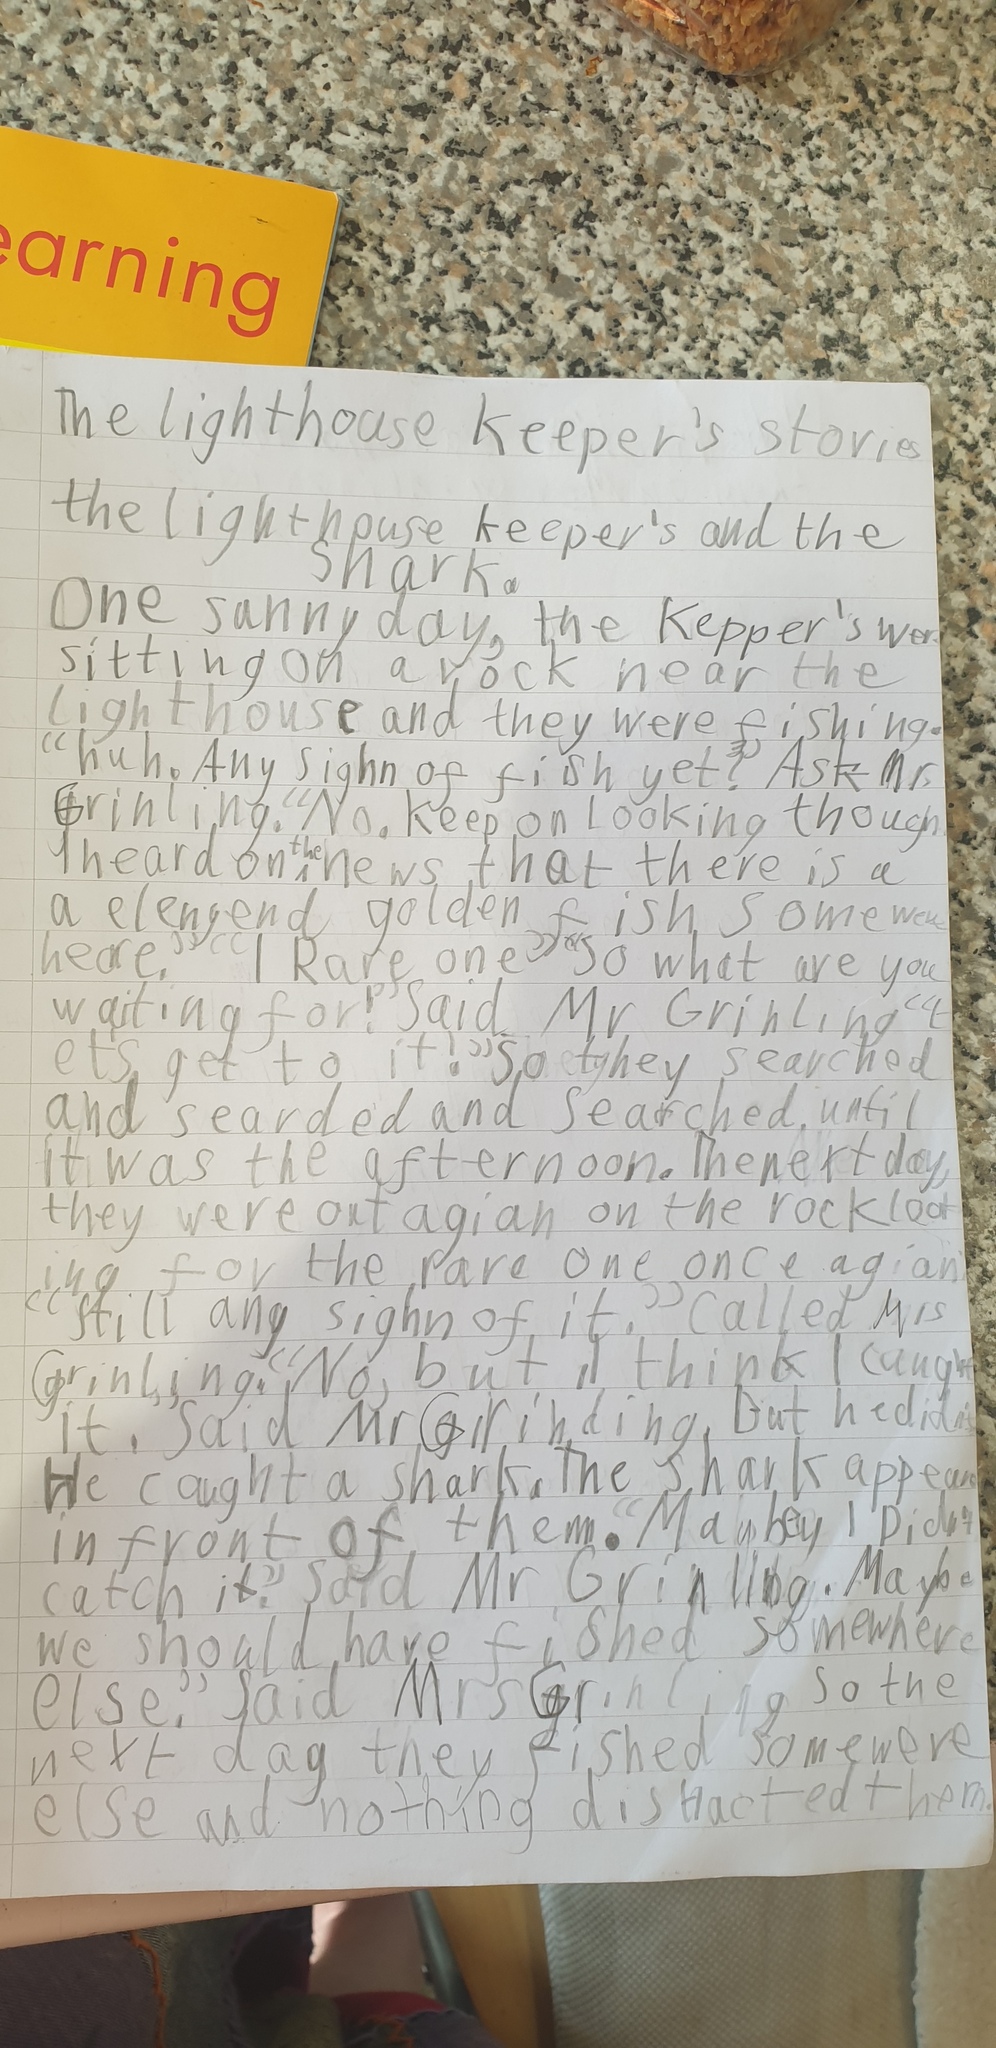 earning
The lighthouse keeper's stories
the lighthouse keeper's and the
Shark.
One sunny day, the Kepper's wer
sitting on a rock near the
lighthouse and they were fishing.
"huh. Any sighn of fish yet?" Ask Mr
Grinling. "No. Keep on looking though
I heard on the news that there is a
a elengend golden fish somewere
heare." "I Rare one" "so what are you
waiting for!" Said Mr Grinling "l
ets get to it!" So they searched
and searded and searched, until
it was the afternoon. The next day,
they were out agian on the rock look
ing for the rare one once agian
"still any sighn of it." Called Mrs
Grinling. "No, but I think I caught
it, Said Mr Grinding. But he didn't
He caught a shark. The shark appear
in front of them. "Maybey I Didn't
catch it?" Said Mr Grinling. Maybe
we should have fished somewhere
else." Said Mrs Grinling So the
next day they fished somewere
else and nothing distracted them.